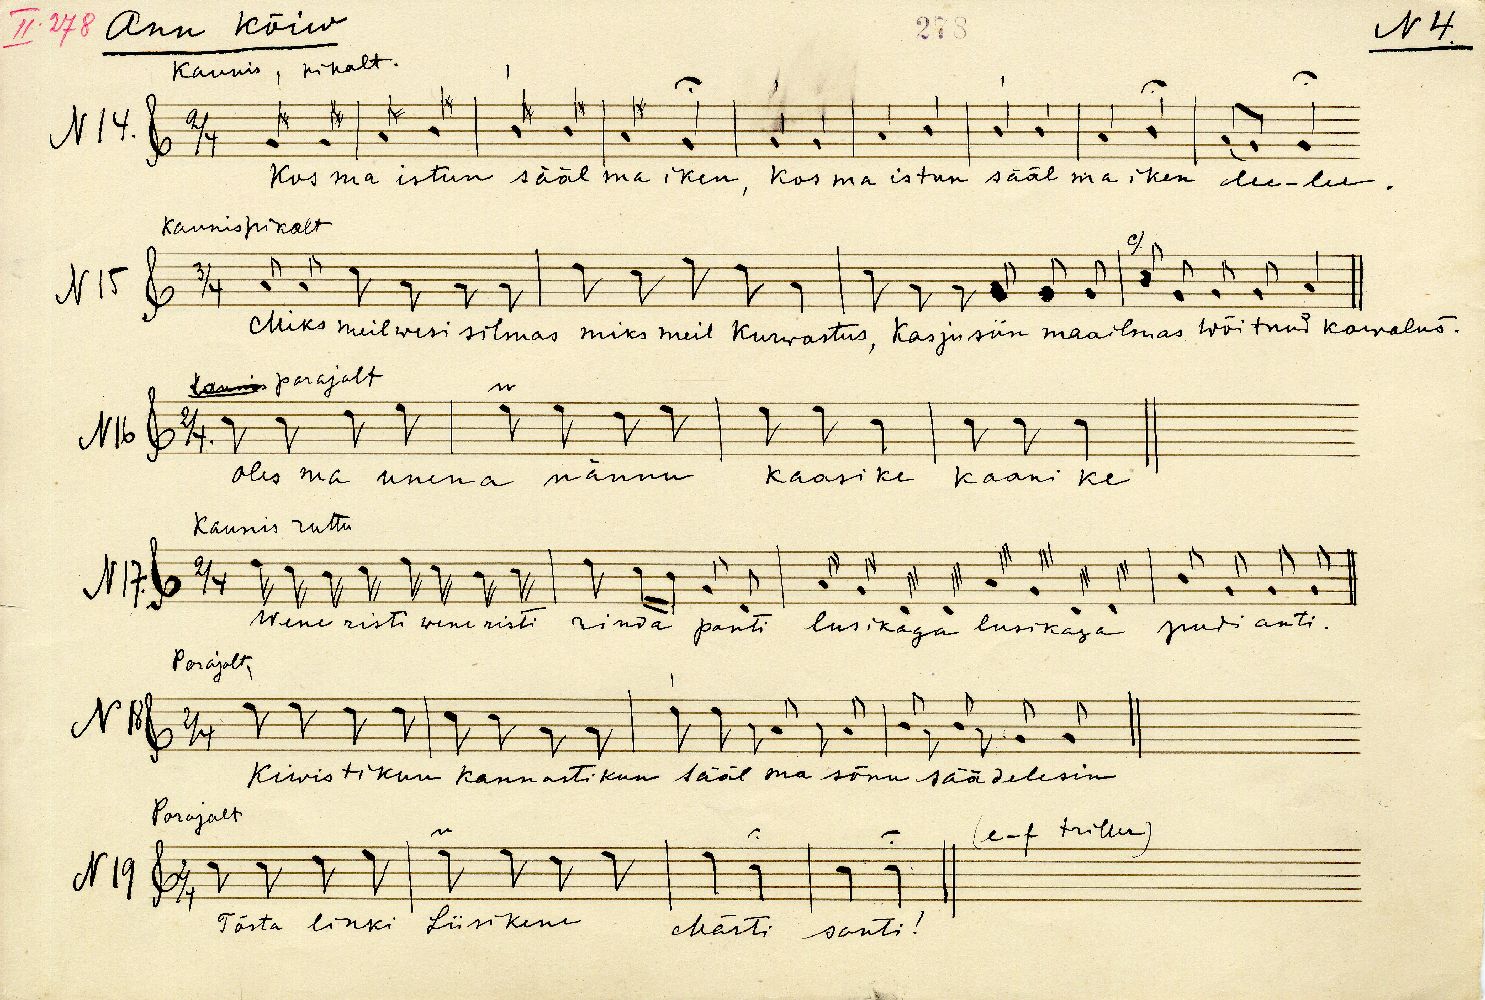 II. 278 Ann Kõiw 278 N 4.
Kaunis, pikalt.
N 14. 2/4
Kos ma istun sääl ma iken, Kos ma istun sääl ma iken lee-lee.
Kaunis pikalt
N 15 3/4
Miks meil wesi silmas miks meil Kurwastus, Kas ju siin maailmas wõitnud kawalus.
Kaunis parajalt
N 16 2/4.
Oles ma unena nännu kaasike kaani ke
Kaunis ruttu
N 17. 2/4
Wene risti wene risti rinda panti lusikaga lusikaga pudi anti.
Parajalt,
N 18 2/4
Kiwistikun kannastikun sääl ma sõnu säädelesin
Parajalt
N 19 2/4 (e-f triller)
Tõsta linki Liisikene Märti santi!